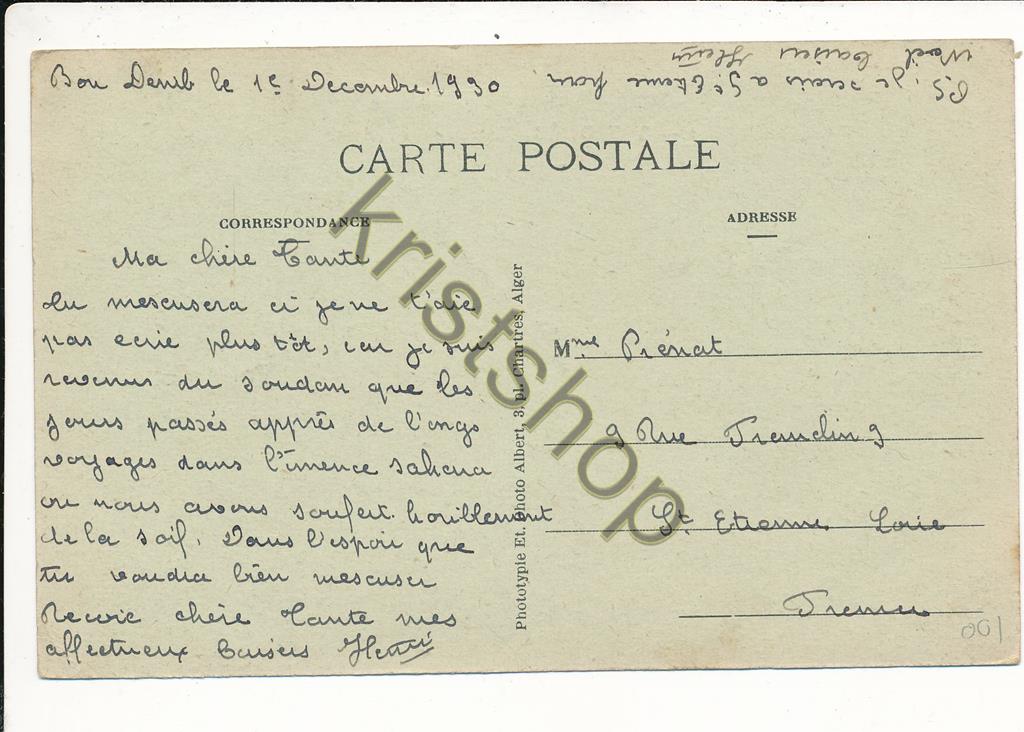 Bou Denib le 1e Decembre 1930
P.S. Je serais a St Etienne pour
Noel baisers Henri
CARTE POSTALE
CORRESPONDANCE
ADRESSE
Ma chère Tante
tu mescusera ci je ne t'aie
pas ecrie plus tôt, car je suis
revenus du soudan que les
jours passés apprês de l'ongs
voyages dans l'imence sahara
ou nous avons soufert horiblement
de la soif. Dans l'espoir que
tu voudra bien mescuser
Recoie chère Tante mes
affectueux baisers Henri
Phototypie Et. Photo Albert, 3, pl. Chartres, Alger
Mme Prénat
9 Rue 9
St Etienne Loire
001
kristshop